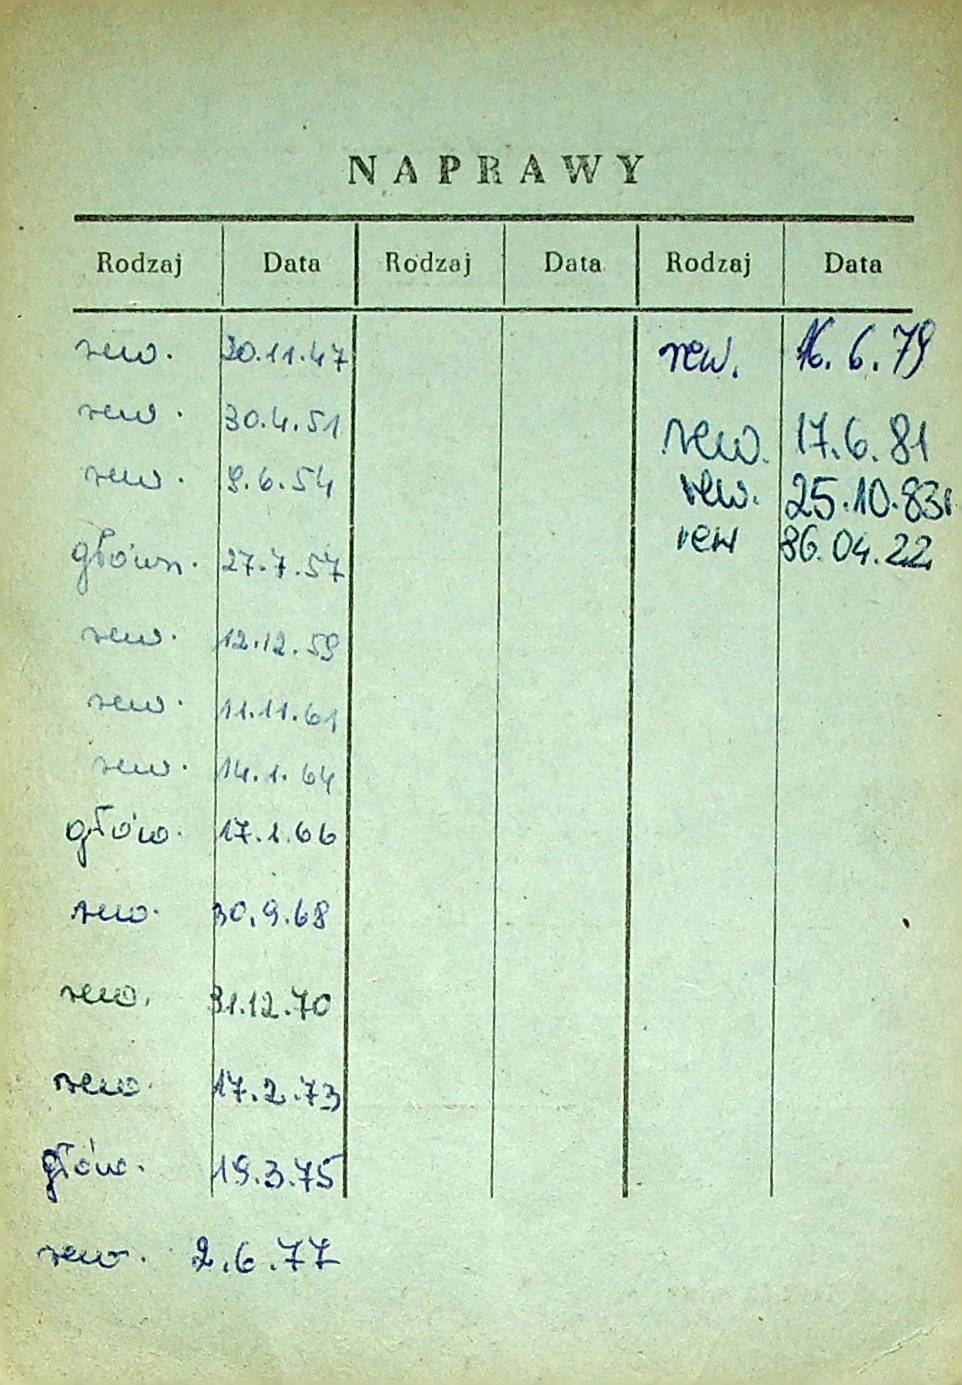 NAPRAWY
Rodzaj Data Rodzaj Data Rodzaj Data
rew. 20.11.47
rew. 30.4.51
rew. 9.6.54
główn. 27.7.57
rew. 12.12.59
rew. 11.11.61
rew. 14.1.64
głów. 17.1.66
rew. 30.9.68
rew. 31.12.70
rew. 17.2.73
głów. 19.3.75
rew. 2.6.77
rew. 16.6.79
rew. 17.6.81
rew. 25.10.83
rew 86.04.22